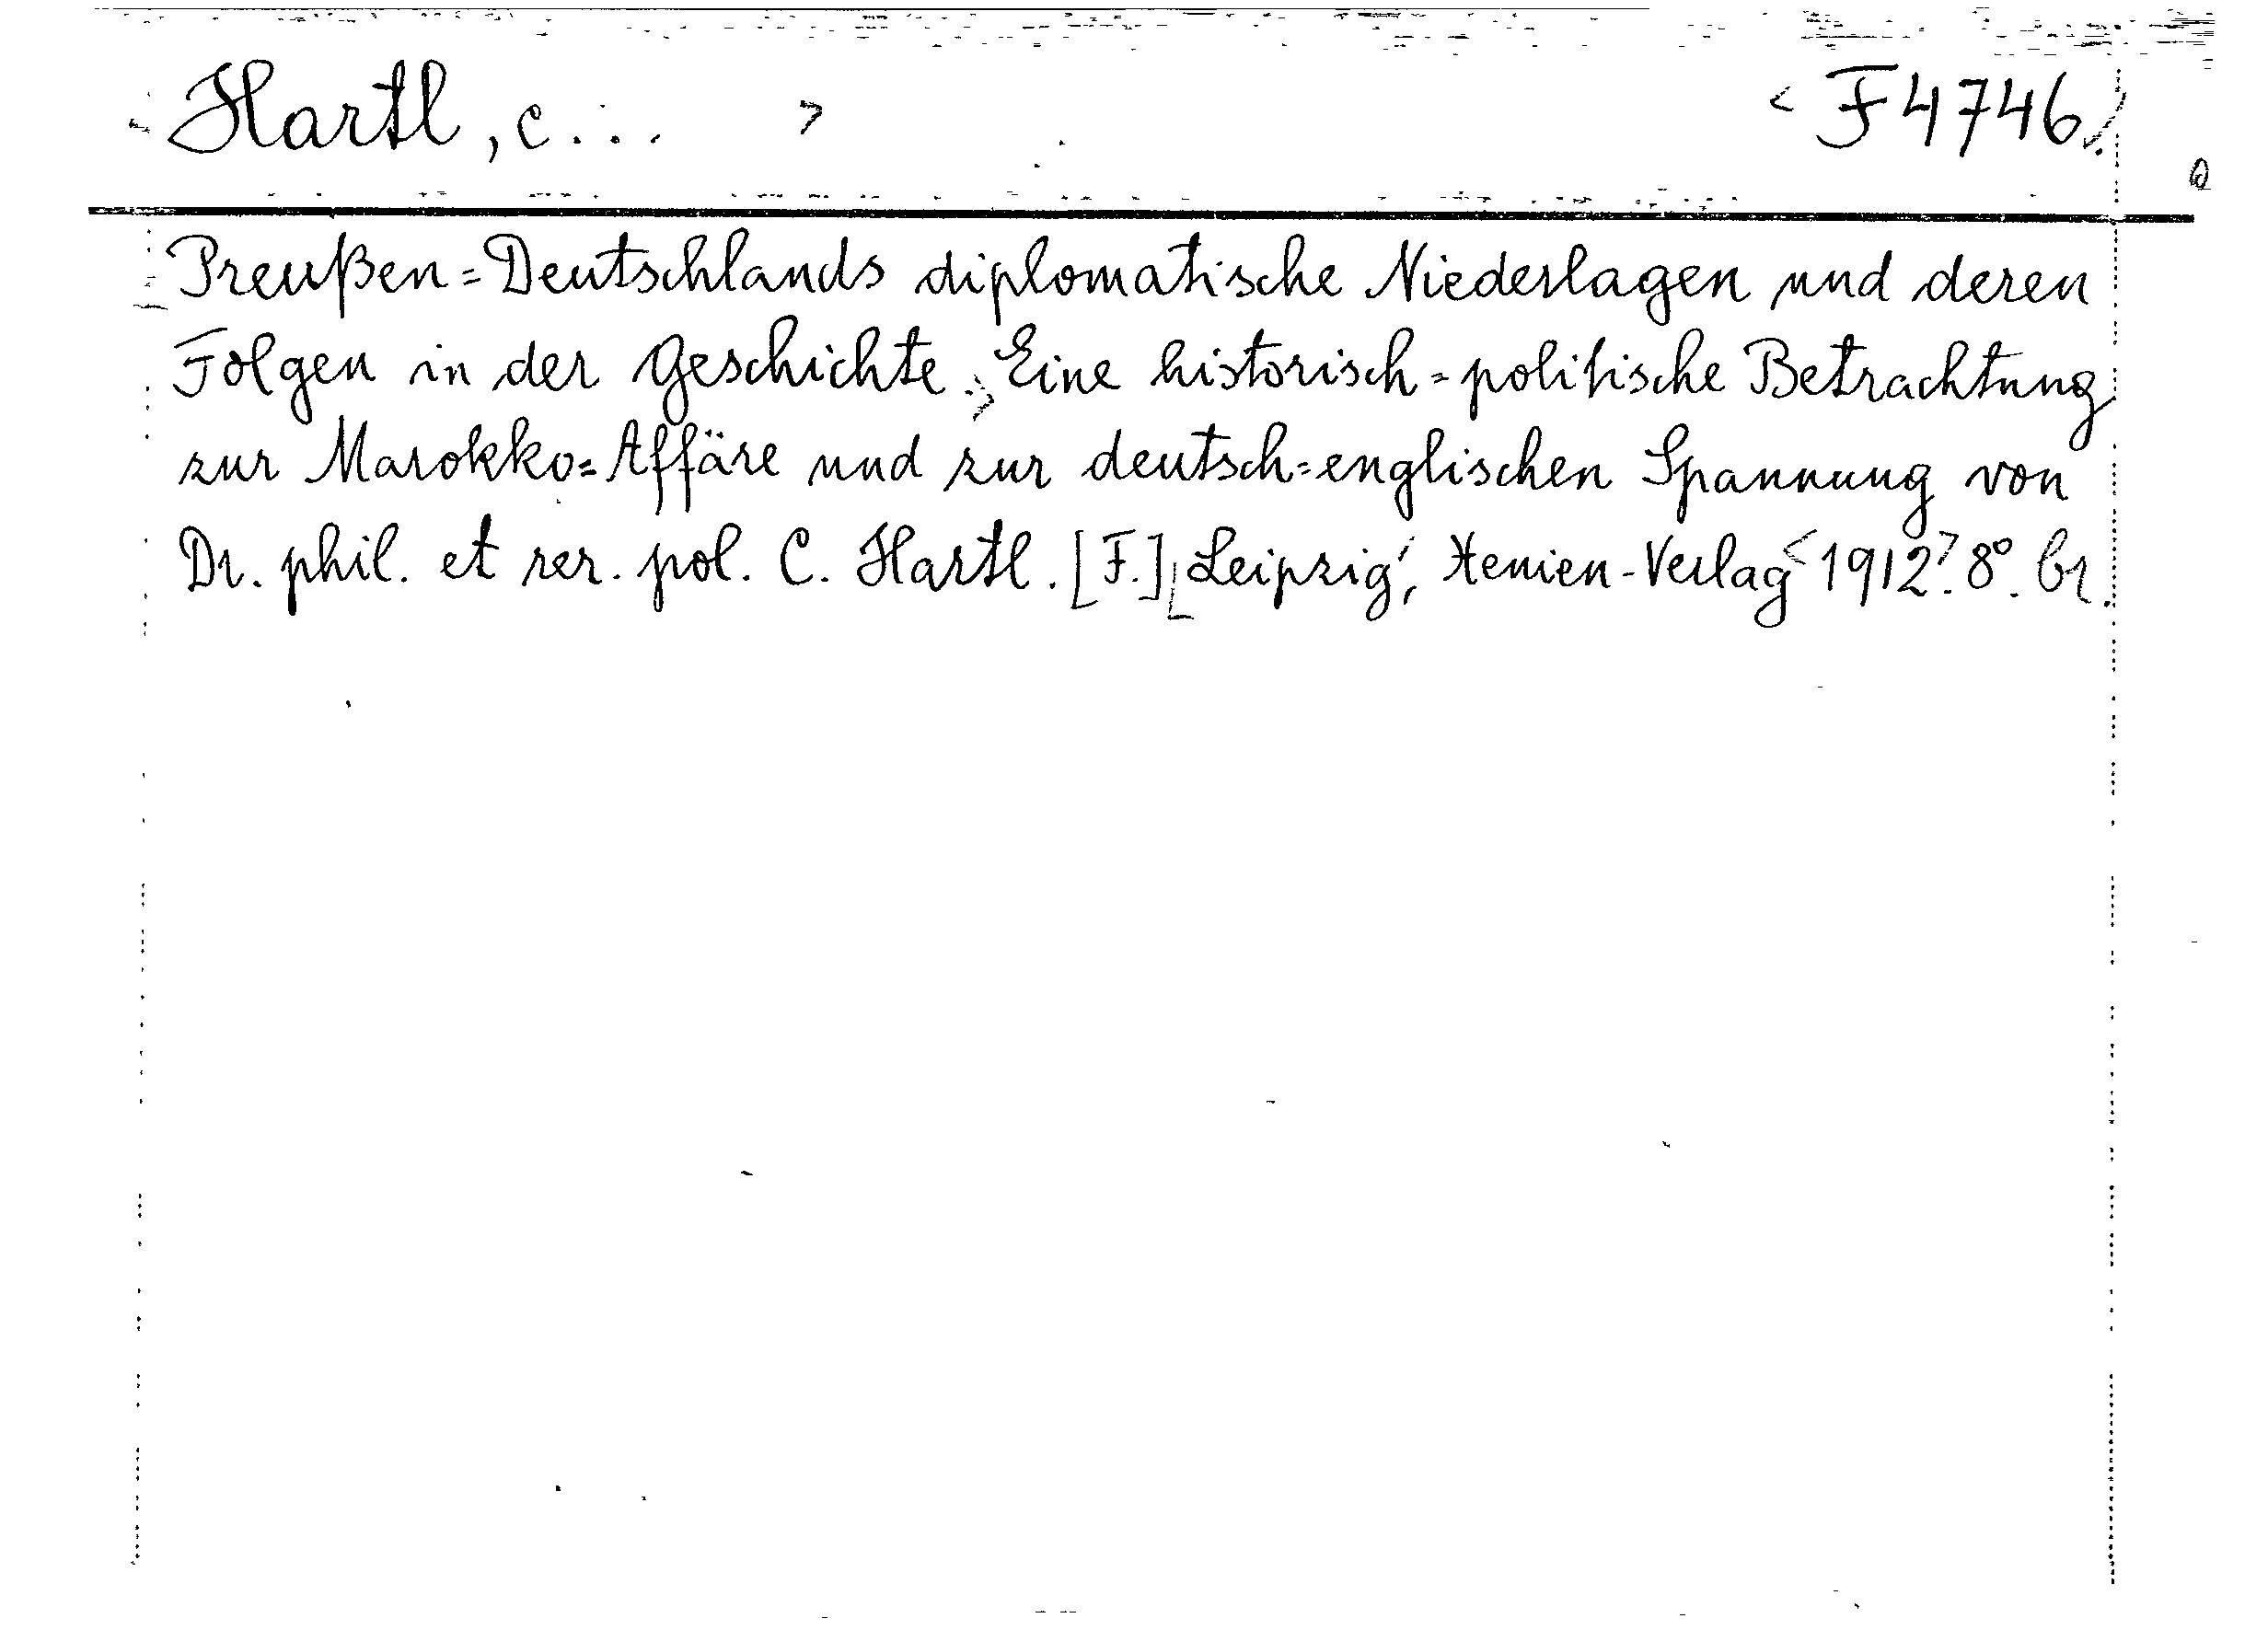 Hartl, C... F4746
Preußen=Deutschlands diplomatische Niederlagen und deren
Folgen in der Geschichte. Eine historisch=politische Betrachtung
zur Marokko=Affäre und zur deutsch=englischen Spannung von
Dr. phil. et rer. pol. C. Hartl. [F.] Leipzig, Xenien-Verlag 1912. 8°. br.